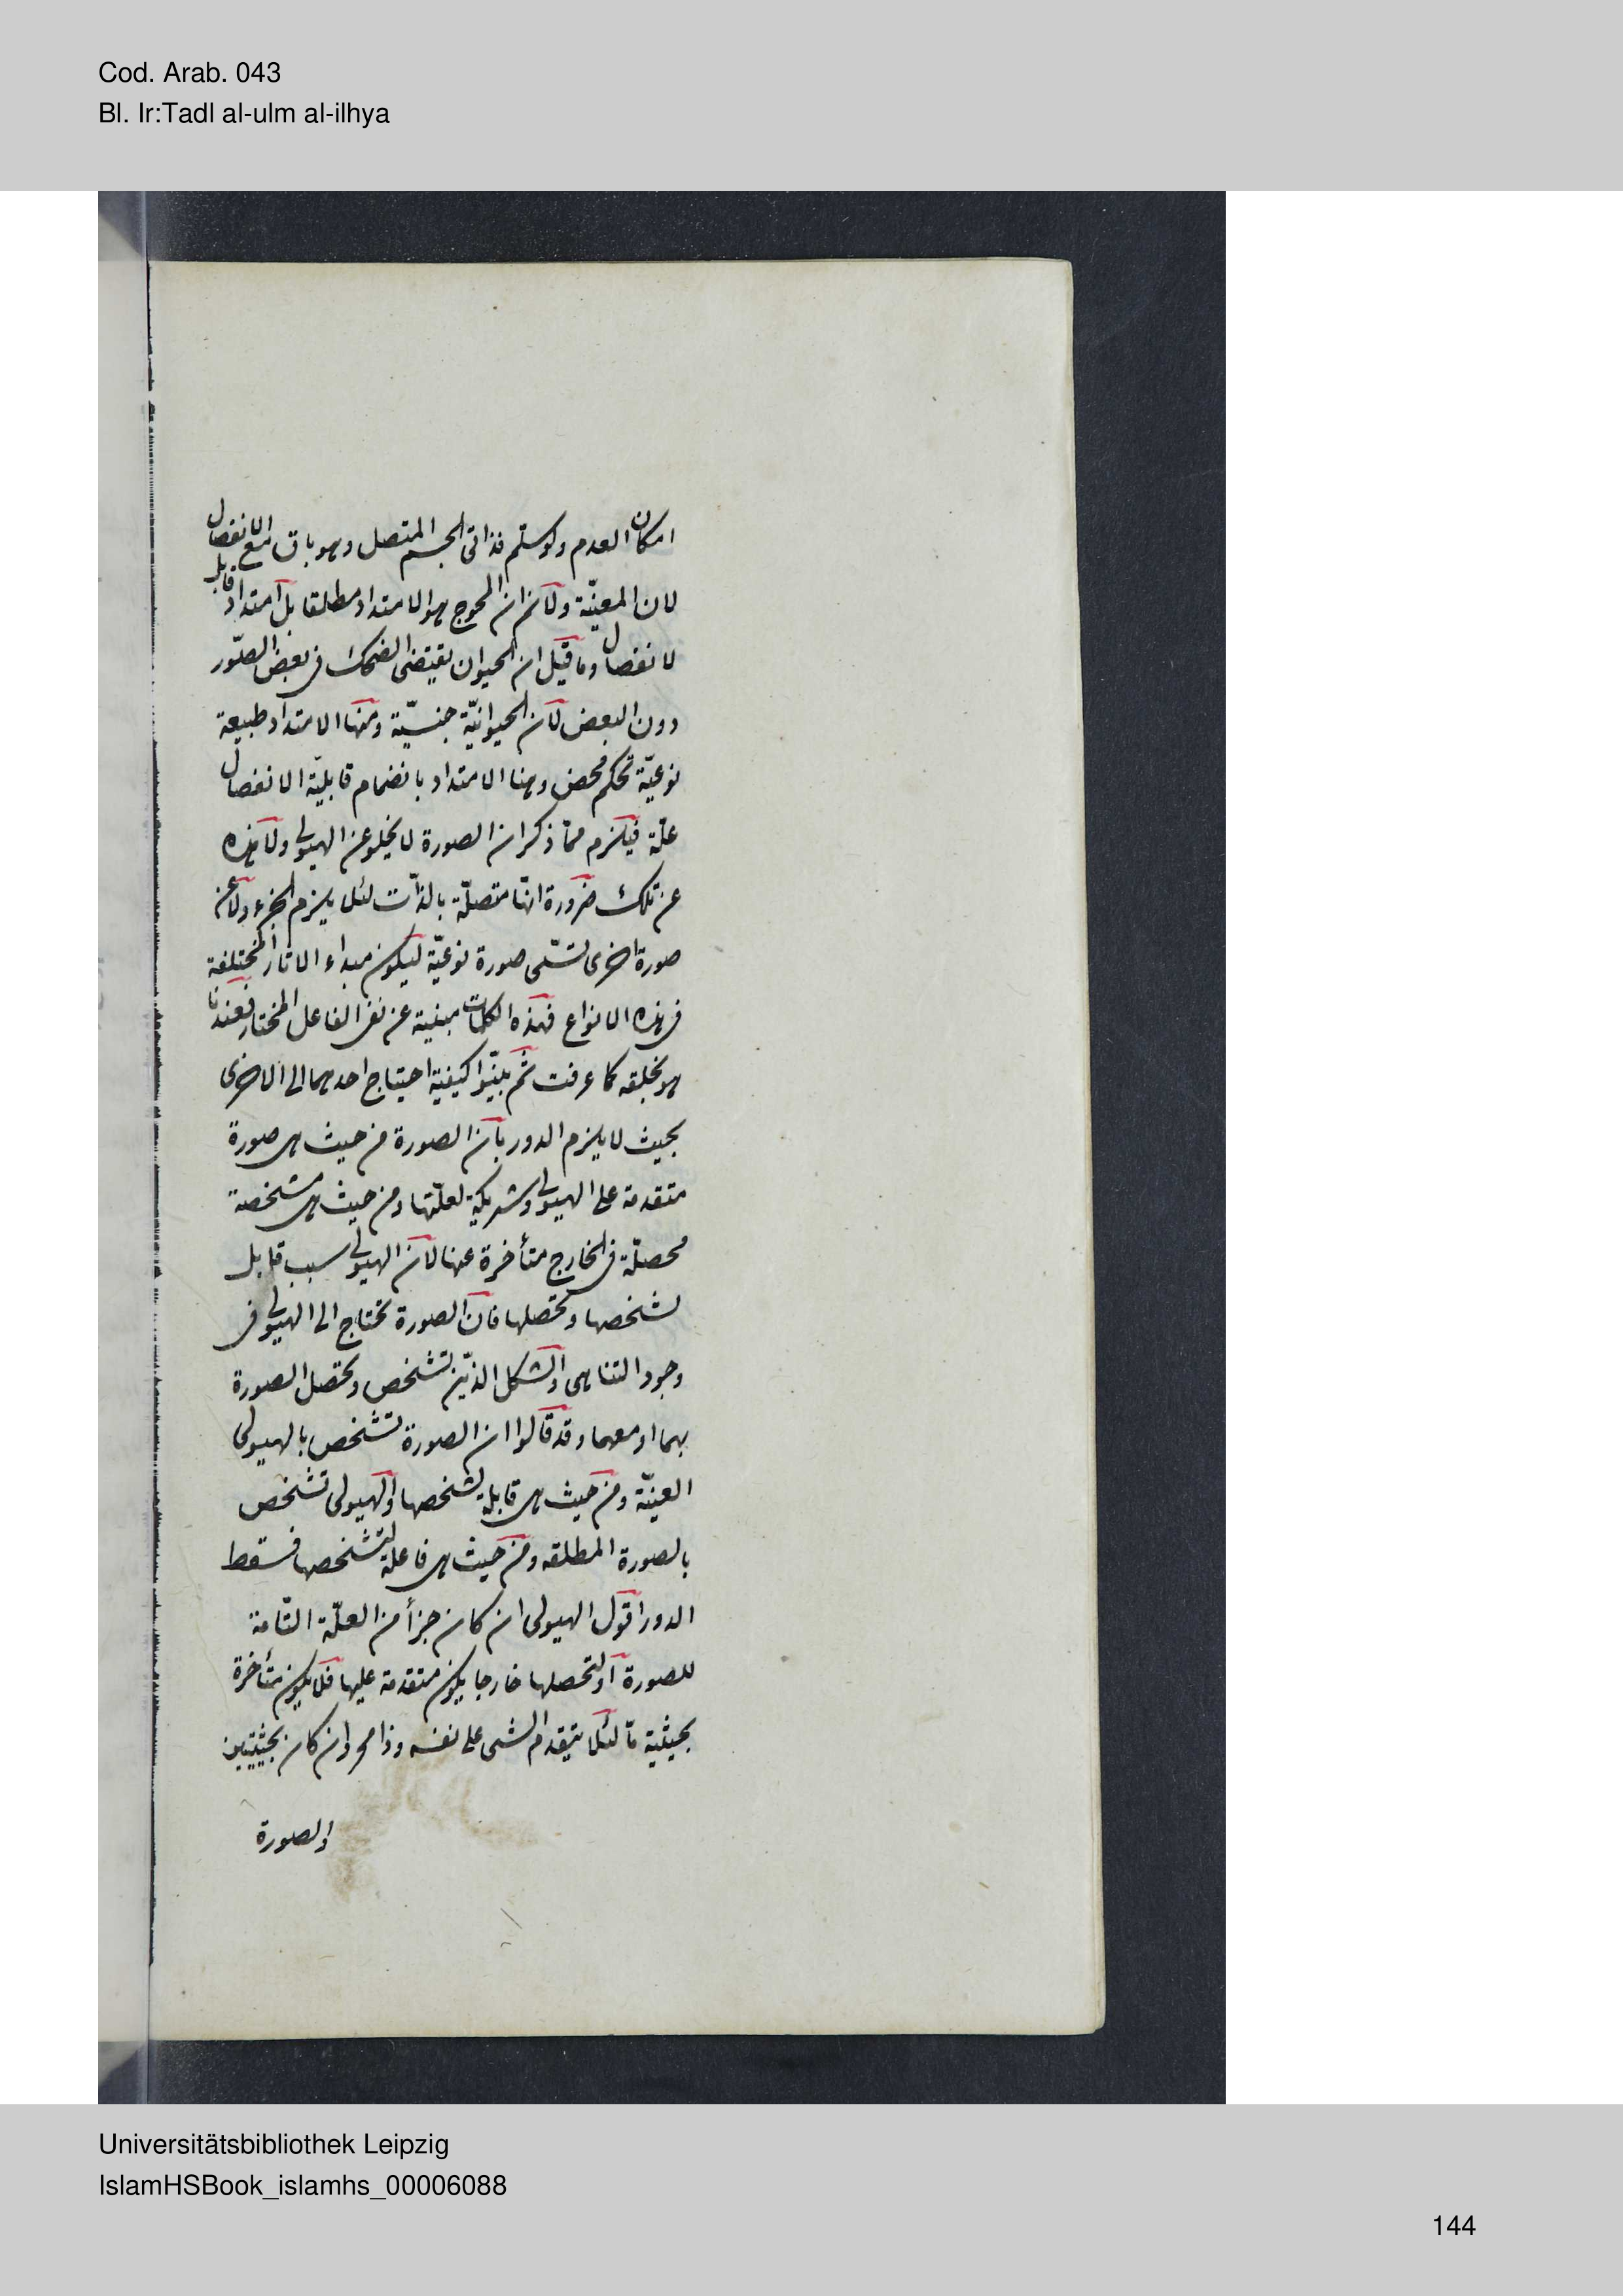 Cod. Arab. 043
Bl. Ir:Tadl al-ulm al-ilhya
امكان العدم ولو سلم فذاتى الجسم المتصل وهو باق مع الانفصال
لان المعيّة ولان المحوج هو الامتداد مطلقا بل امتداد قابل
لانفصال وما قيل ان الحيوان يقتضى الضحك فى بعض الصّور
دون البعض لان الحيوانيّة جنسيّة ومنها الامتداد طبيعة
نوعيّة تحكم محض وهنا الامتداد بانضمام قابليّة الانفصال
علّة فيلزم ممّا ذكر ان الصورة لا يخلو عن الهيولى ولا هذه
عن تلك ضرورة انّها متصلّة بالذّات لئلا يلزم الجزء ولا عن
صورة اخرى تسمّى صورة نوعيّة ليكون مبداء الاثار المختلفة
فى هذه الانواع فهذه الكلمات مبنية عن نفى الفاعل المختار فعندنا
هو بخلقه كما عرفت ثم بيّنوا كيفية احتياج احدهما الى الاخرى
بحيث لا يلزم الدور بان الصورة من حيث هى صورة
متقدمة على الهيولى وشريكية لعلّتها ومن حيث هى مشخصة
محصلّة فى الخارج متأخرة عنها لان الهيولى سبب قابل
لشخصها وتحصلها فان الصورة تحتاج الى الهيولى فى
وجود التناهى والشكل الذّين تشخص وتحصل الصورة
بهما او معهما وقد قالوا ان الصورة تشخص بالهيولى
العينّة ومن حيث هى قابلة لشخصها والهيولى تشخص
بالصورة المطلقه ومن حيث هى فاعلة لتشخصها فسقط
الدور اقول الهيولى ان كان جزأ من العلّة التّامة
للصورة او لتحصلها خارجا يكون متقدمة عليها فلا يكون متأخرة
بحيثية مّا لئلا يتقدم الشى على نفسه وذا مح وان كان بحيثيتين
والصورة
Universitätsbibliothek Leipzig
IslamHSBook_islamhs_00006088
144